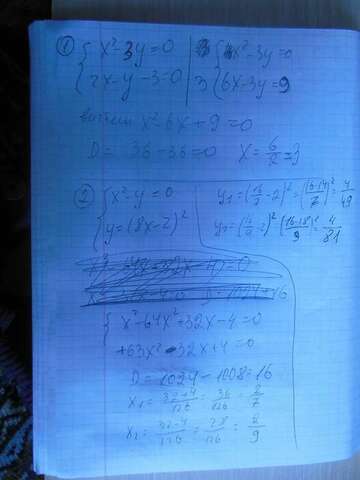 ① { x²-3y=0   3 { x²-3y=0
{ 2x-y-3=0   3 { 6x-3y=9
x²-6x+9=0
D= 36-36=0   x=6/2=3
② { x²-y=0
{ y=(8x-2)²
y₁=(16/7-2)²=(16-14/7)²=4/49
y₂=(16/9-2)²(16-18/9)²=4/81
{ x²-64x²+32x-4=0
+63x²-32x+4=0
D=1024-1008=16
x₁=32+4/126=36/126=2/7
x₂=32-4/126=28/126=2/9